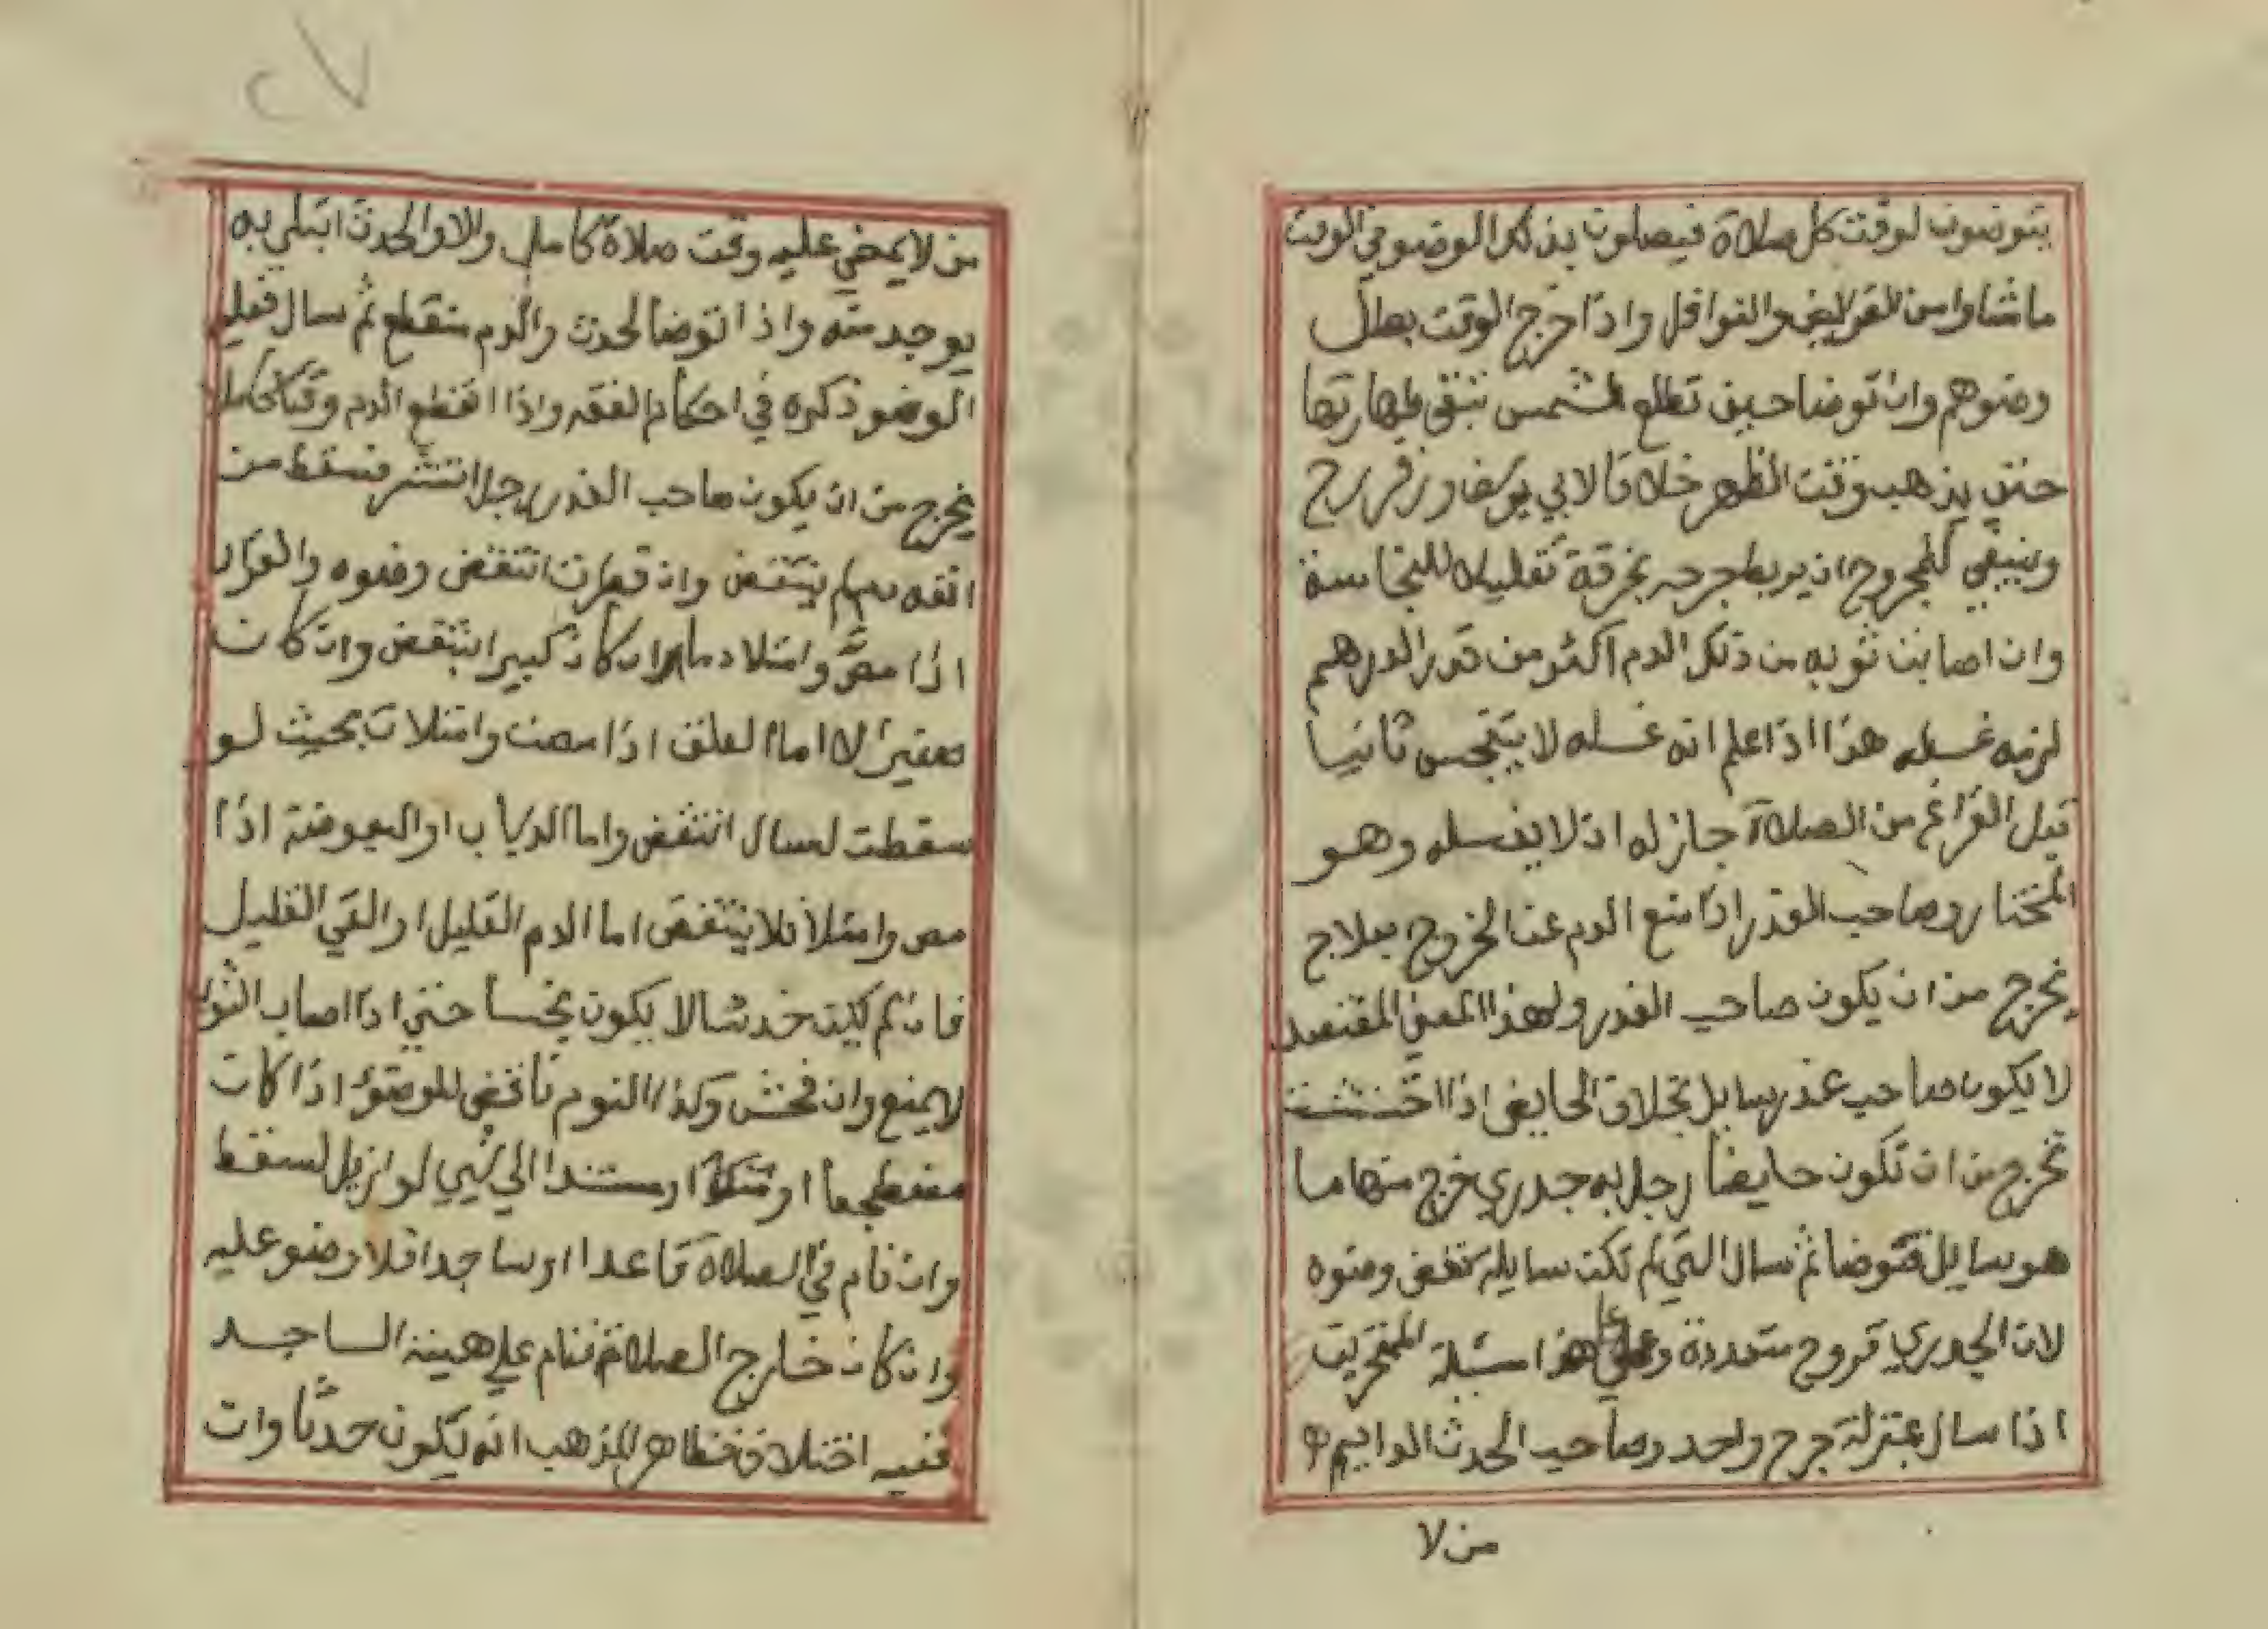 يتوضون لوقت كل صلاة فيصلون بذلك الوضو في الوقت
ما شاوا من الفرايض والنوافل واذا خرج الوقت بطل
وضوهم وان توضا حين تطلع الشمس تبقى طهارتها
حتى يذهب وقت الظهر خلافا لابي يوسف وزفر رح
وينبغي للمجروح ان يربط جرحه بخرقة تقليلا للنجاسة
وان اصابت ثوبه من ذلك الدم اكثر من قدر الدرهم
لزمه غسله هذا اذا علم انه غسله لا يتنجس ثانيا
قبل الفراغ من الصلاة جاز له ان لا يغسله وهو
المختار وصاحب العذر اذا منع الدم عن الخروج بعلاج
يخرج من ان يكون صاحب العذر ولهذا المعني المفتصد
لا يكون صاحب عذر سايل بخلاف الحايض اذا احتشت
تخرج من ان تكون حايضا رجل به جدري خرج منها ما
هو سايل فتوضا ثم سال التي لم تكن سايلة نتقض وضوه
لان الجدري قروح متعددة وعلي هذا مسيلة المنخرين
اذا سال بمنزلة جرح واحد وصاحب الحدث الدايم هو
من لا
٢٧
من لا يمضي عليه وقت صلاة كامل والا والحدث ابتلي به
يوجد منه واذا توضا لحدث والدم منقطع ثم سال فعليه
الوضو ذكره في احكام الفقه واذا انقطع الدم وقتا كاملا
يخرج من ان يكون صاحب العذر رجل انتثر فسقط من
انفه لم ينتقض وان قطرت انتقض وضوه والقراد
اذا مص وامتلا دما ان كان كبيرا انتقض وان كان
صغيرا لا اما العلق اذا مصت وامتلات بحيث لو
سقطت لسال انتقض واما الذباب او البعوضة اذا
مص وامتلا فلا ينتقض اما الدم القليل او القي القليل
فان لم يكن حدثا لا يكون نجسا حتي اذا اصاب الثوب
لا يمنع وان فحش وكذا النوم ناقض للوضوء اذا كان
مضطجعا او متكئا او مستندا الي شيي لو ازيل لسقط
وان نام في الصلاة قاعدا او ساجدا فلا وضو عليه
وان كان خارج الصلاة فنام علي هيئة الساجد
ففيه اختلاف فظاهر المذهب انه يكون حدثا وان